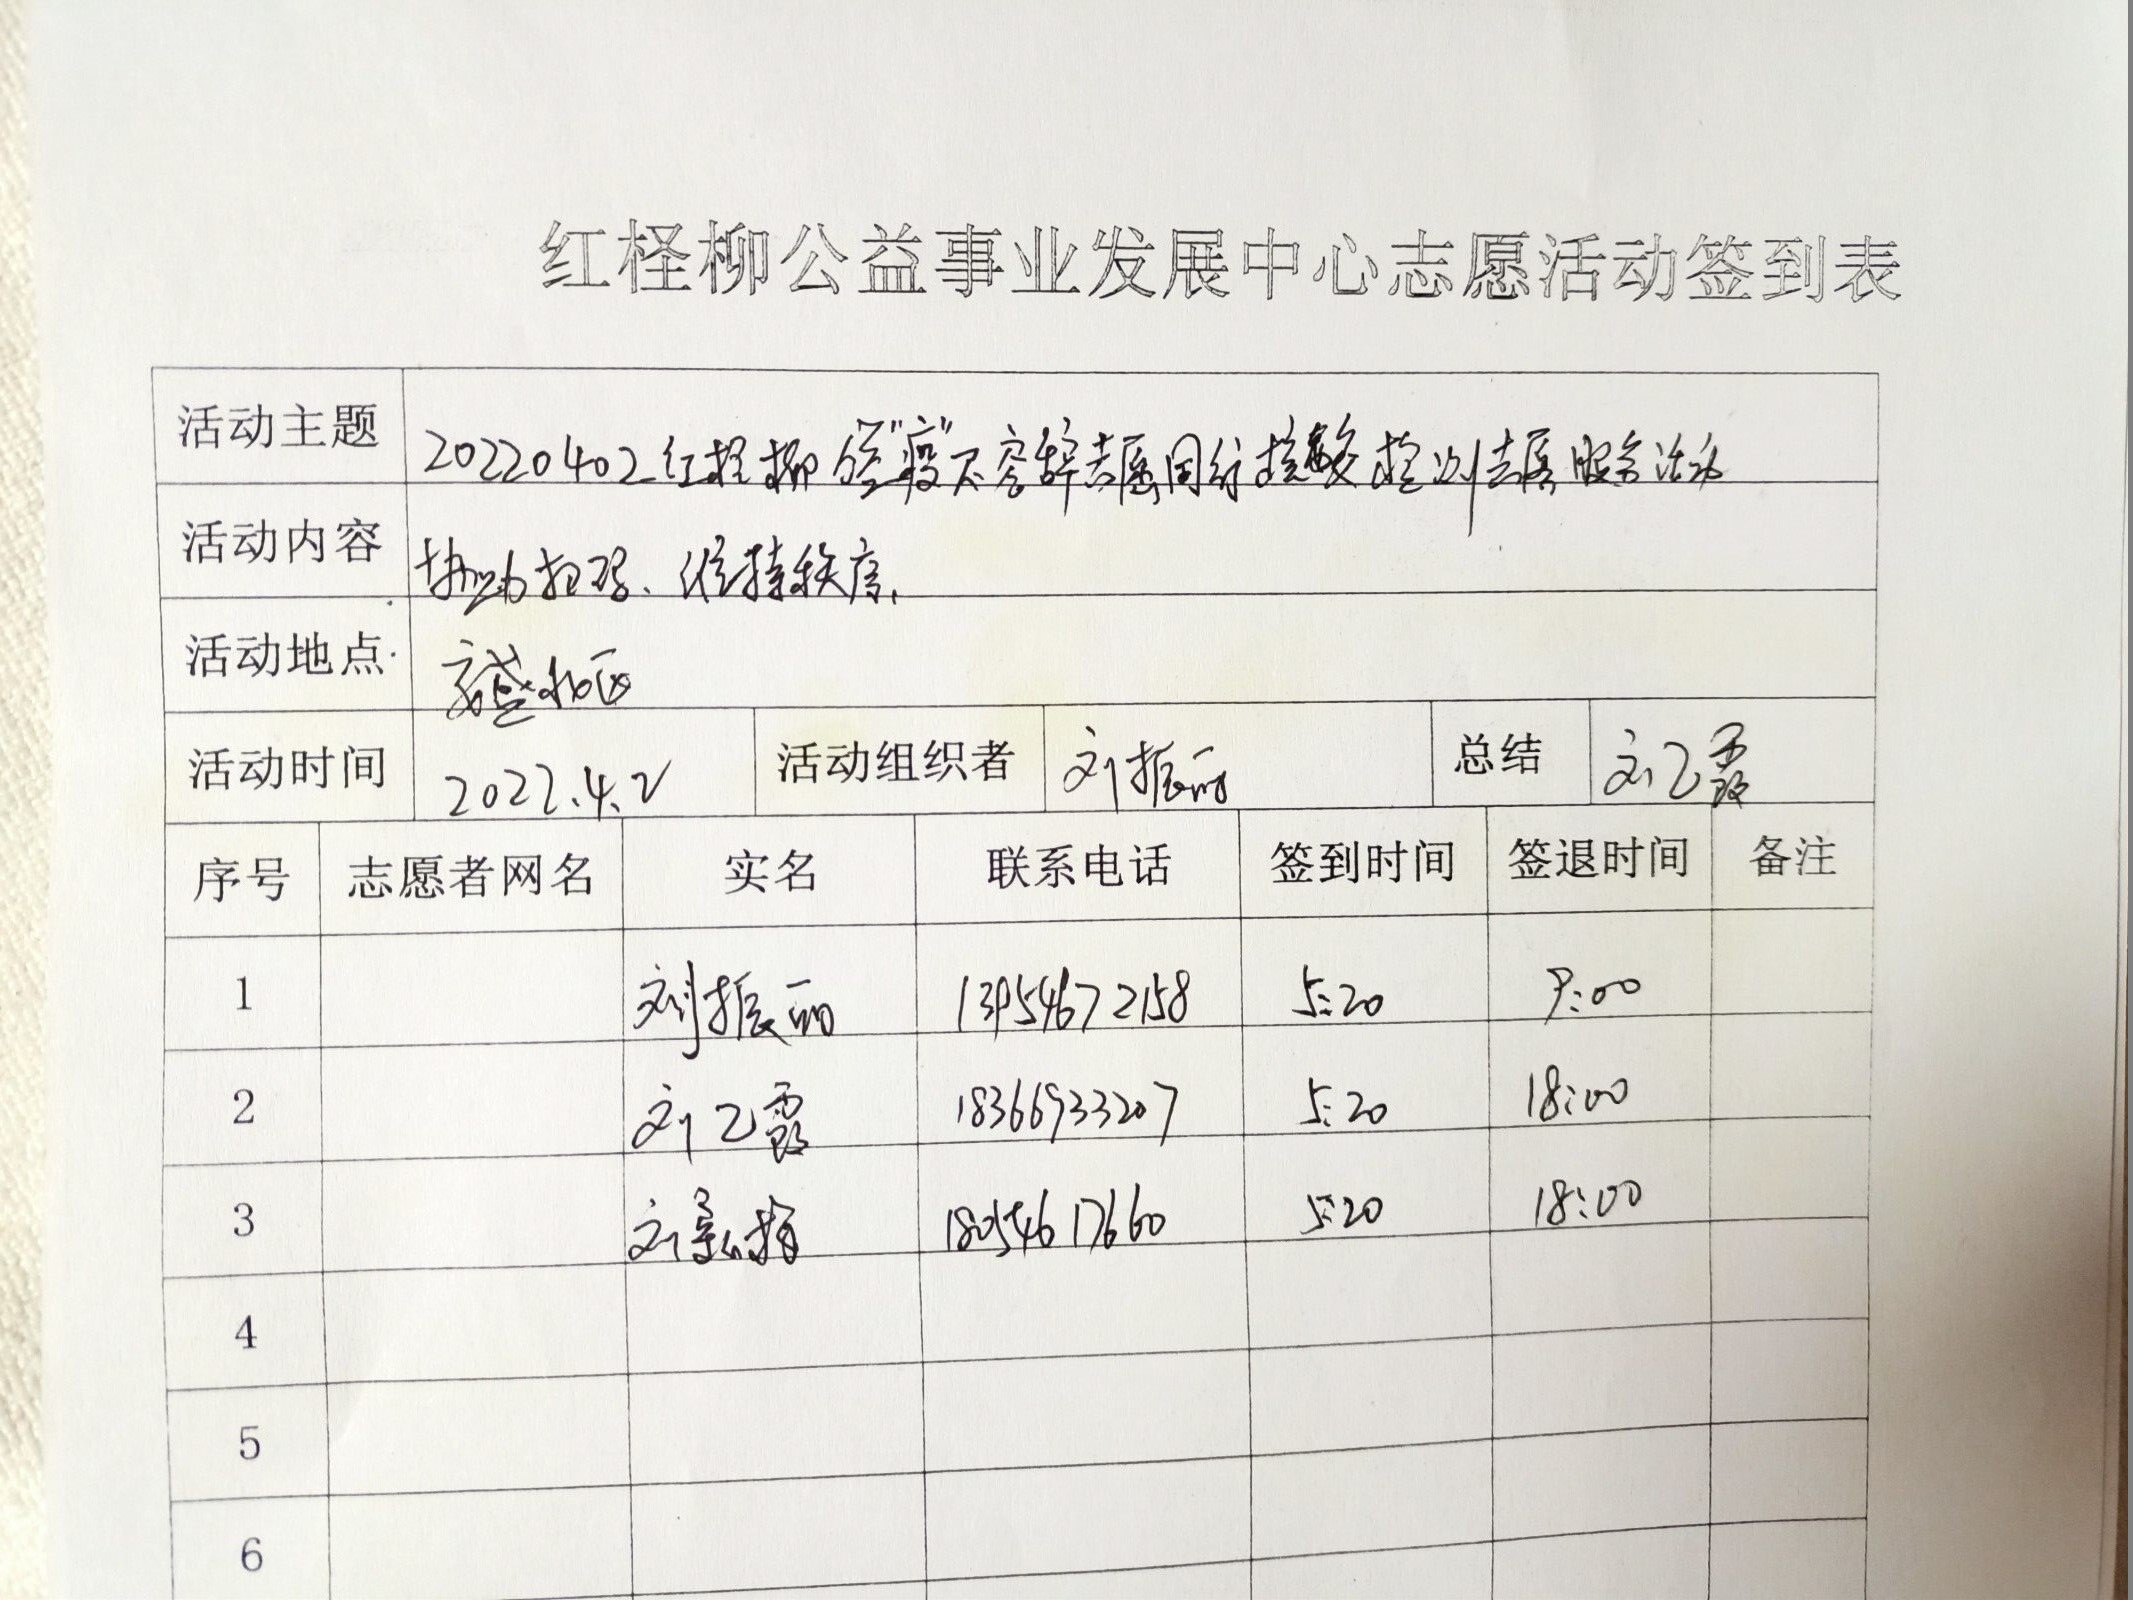 红柽柳公益事业发展中心志愿活动签到表
活动主题 20220402红柽柳“疫”不容辞志愿同行核酸检测志愿服务活动
活动内容 协助扫码、维持秩序、
活动地点
活动时间 2022.4.2 活动组织者 刘振丽 总结 刘乙霞
序号 志愿者网名 实名 联系电话 签到时间 签退时间 备注
1 刘振丽 13954672158 5:20 9:00
2 刘乙霞 18366933207 5:20 18:00
3 刘 18054617660 5:20 18:00
4
5
6